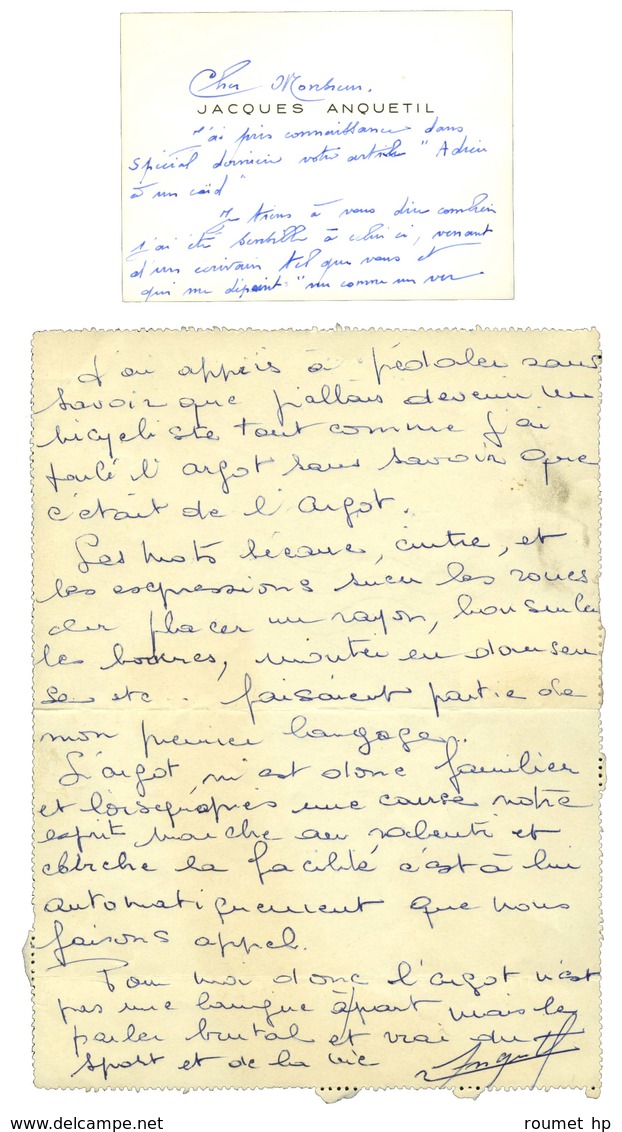 Cher Monsieur.
JACQUES ANQUETIL
J'ai pris connaissance dans
Spécial dernier votre article "Adieu
à un caïd"
Je tiens à vous dire combien
j'ai été sensible à celui ci, venant
d'un écrivain tel que vous et
qui me dépeint "nu comme un ver
J'ai appris à pédaler sans
savoir que j'allais devenir un
bicycliste tout comme j'ai
parlé l'argot sans savoir que
c'était de l'argot.
Les mots bécane, cintre, et
les expressions sucer les roues
placer un rayon,
les bornes, monter en danseu
se etc.. faisaient partie de
mon premier langage..
L'argot m'est donc familier
et lorsqu'après une course notre
esprit marche au ralenti et
cherche la facilité c'est à lui
automatiquement que nous
faisons appel.
Pour moi donc l'argot n'est
pas une langue à part mais le
parler brutal et vrai du
sport et de la vie Anquetil
roumet hp